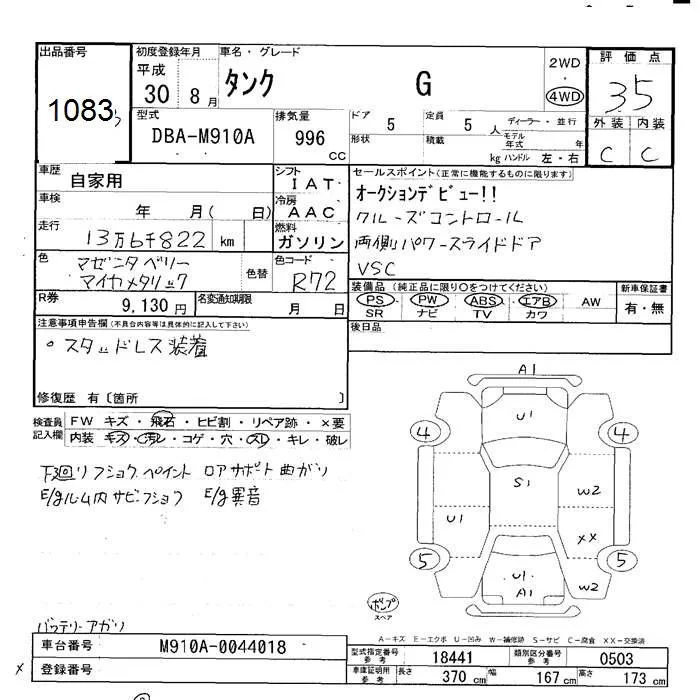 出品番号 初度登録年月 車名・グレード 2WD 評価点
1083 平成 30 8月 タンク G ・ 4WD 3.5
型式 排気量 ドア 5 定員 5人 ディーラー・並行 外装 内装
DBA-M910A 996 CC 形状 積載 kg モデル年式 年 ハンドル 左・右 C C
車歴 自家用 シフト IAT セールスポイント(正常に機能するものに限ります)
車検 年 月( 日) 冷房 AAC オークションデビュー!!
走行 13万6千822 km 燃料 ガソリン クルーズコントロール
両側パワースライドドア
色 マゼンタベリー 色替 色コード R72 VSC
マイカメタリック
装備品(純正品に限り○をつけてください) 新車保証書
R券 9,130円 名変通知期限 月 日 PS PW ABS エアB AW 有・無
SR ナビ TV カワ
注意事項申告欄(不具合内容等は具体的に記入して下さい) 後日品
○スタッドレス装着
修復歴 有〔箇所 〕
検査員記入欄 FW キズ・飛石・ヒビ割・リペア跡・×要
内装 キズ・汚レ・コゲ・穴・スレ・キレ・破レ
A1
U1
4 4
下廻リフショク ペイント ロアサポート曲ガリ
S1
E/gルーム内サビフショク E/g異音
W2
U1
XX
5 5
U1
A1 W2
ポンプ
スペア
バッテリーアガリ
A-キズ E-エクボ U-凹み W-補修跡 S-サビ C-腐食 XX-交換済
車台番号 M910A-0044018 型式指定番号 参考 18441 類別区分番号 参考 0503
× 登録番号 車庫証明用 参考 長さ 370cm 幅 167cm 高さ 173cm